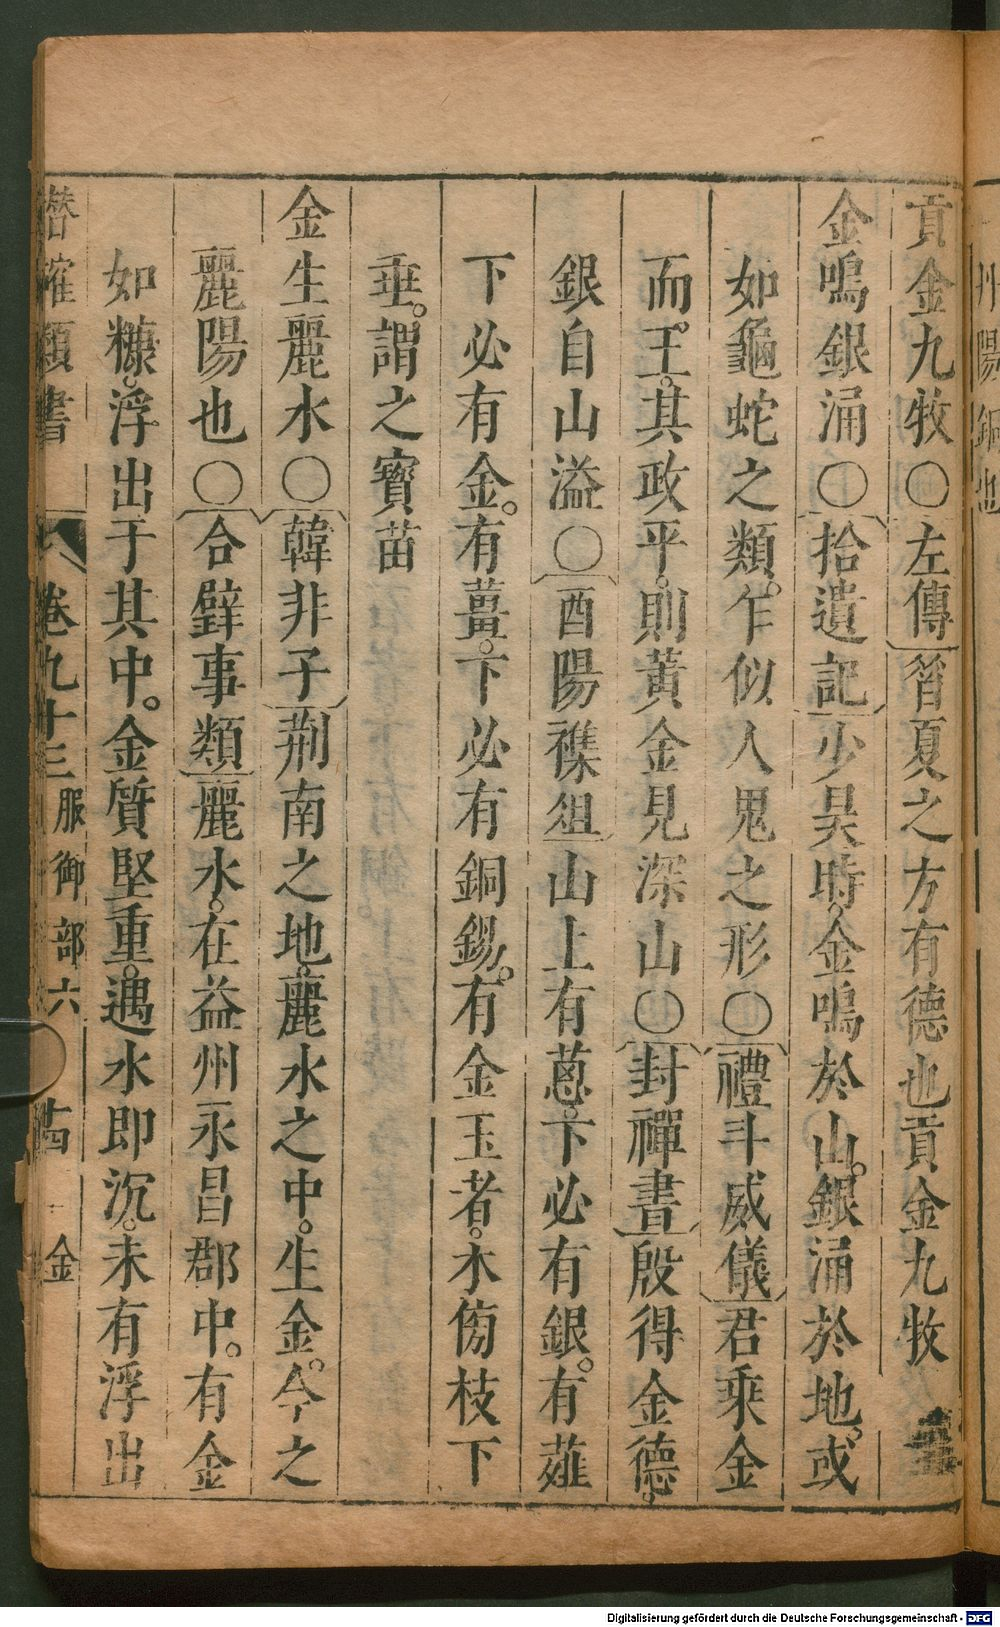 貢金九牧〇左傳昔夏之方有德也貢金九牧
金鳴銀涌〇拾遺記少昊時。金鳴於山。銀涌於地。或
如龜蛇之類。乍似人鬼之形〇禮斗威儀君乘金
而王。其政平。則黃金見深山〇封禪書殷得金德。
銀自山溢〇酉陽襍俎山上有蔥。下必有銀。有薤
下必有金。有薑。下必有銅錫。有金玉者。木傍枝下
垂。謂之寶苗
金生麗水〇韓非子荊南之地。麗水之中。生金。今之
麗陽也〇合璧事類麗水。在益州永昌郡中。有金
如糠。浮出于其中。金質堅重。遇水即沉。未有浮出
潛確類書 卷九十三 服御部六 廿 金
丹陽銅也
Digitalisierung gefördert durch die Deutsche Forschungsgemeinschaft - DFG